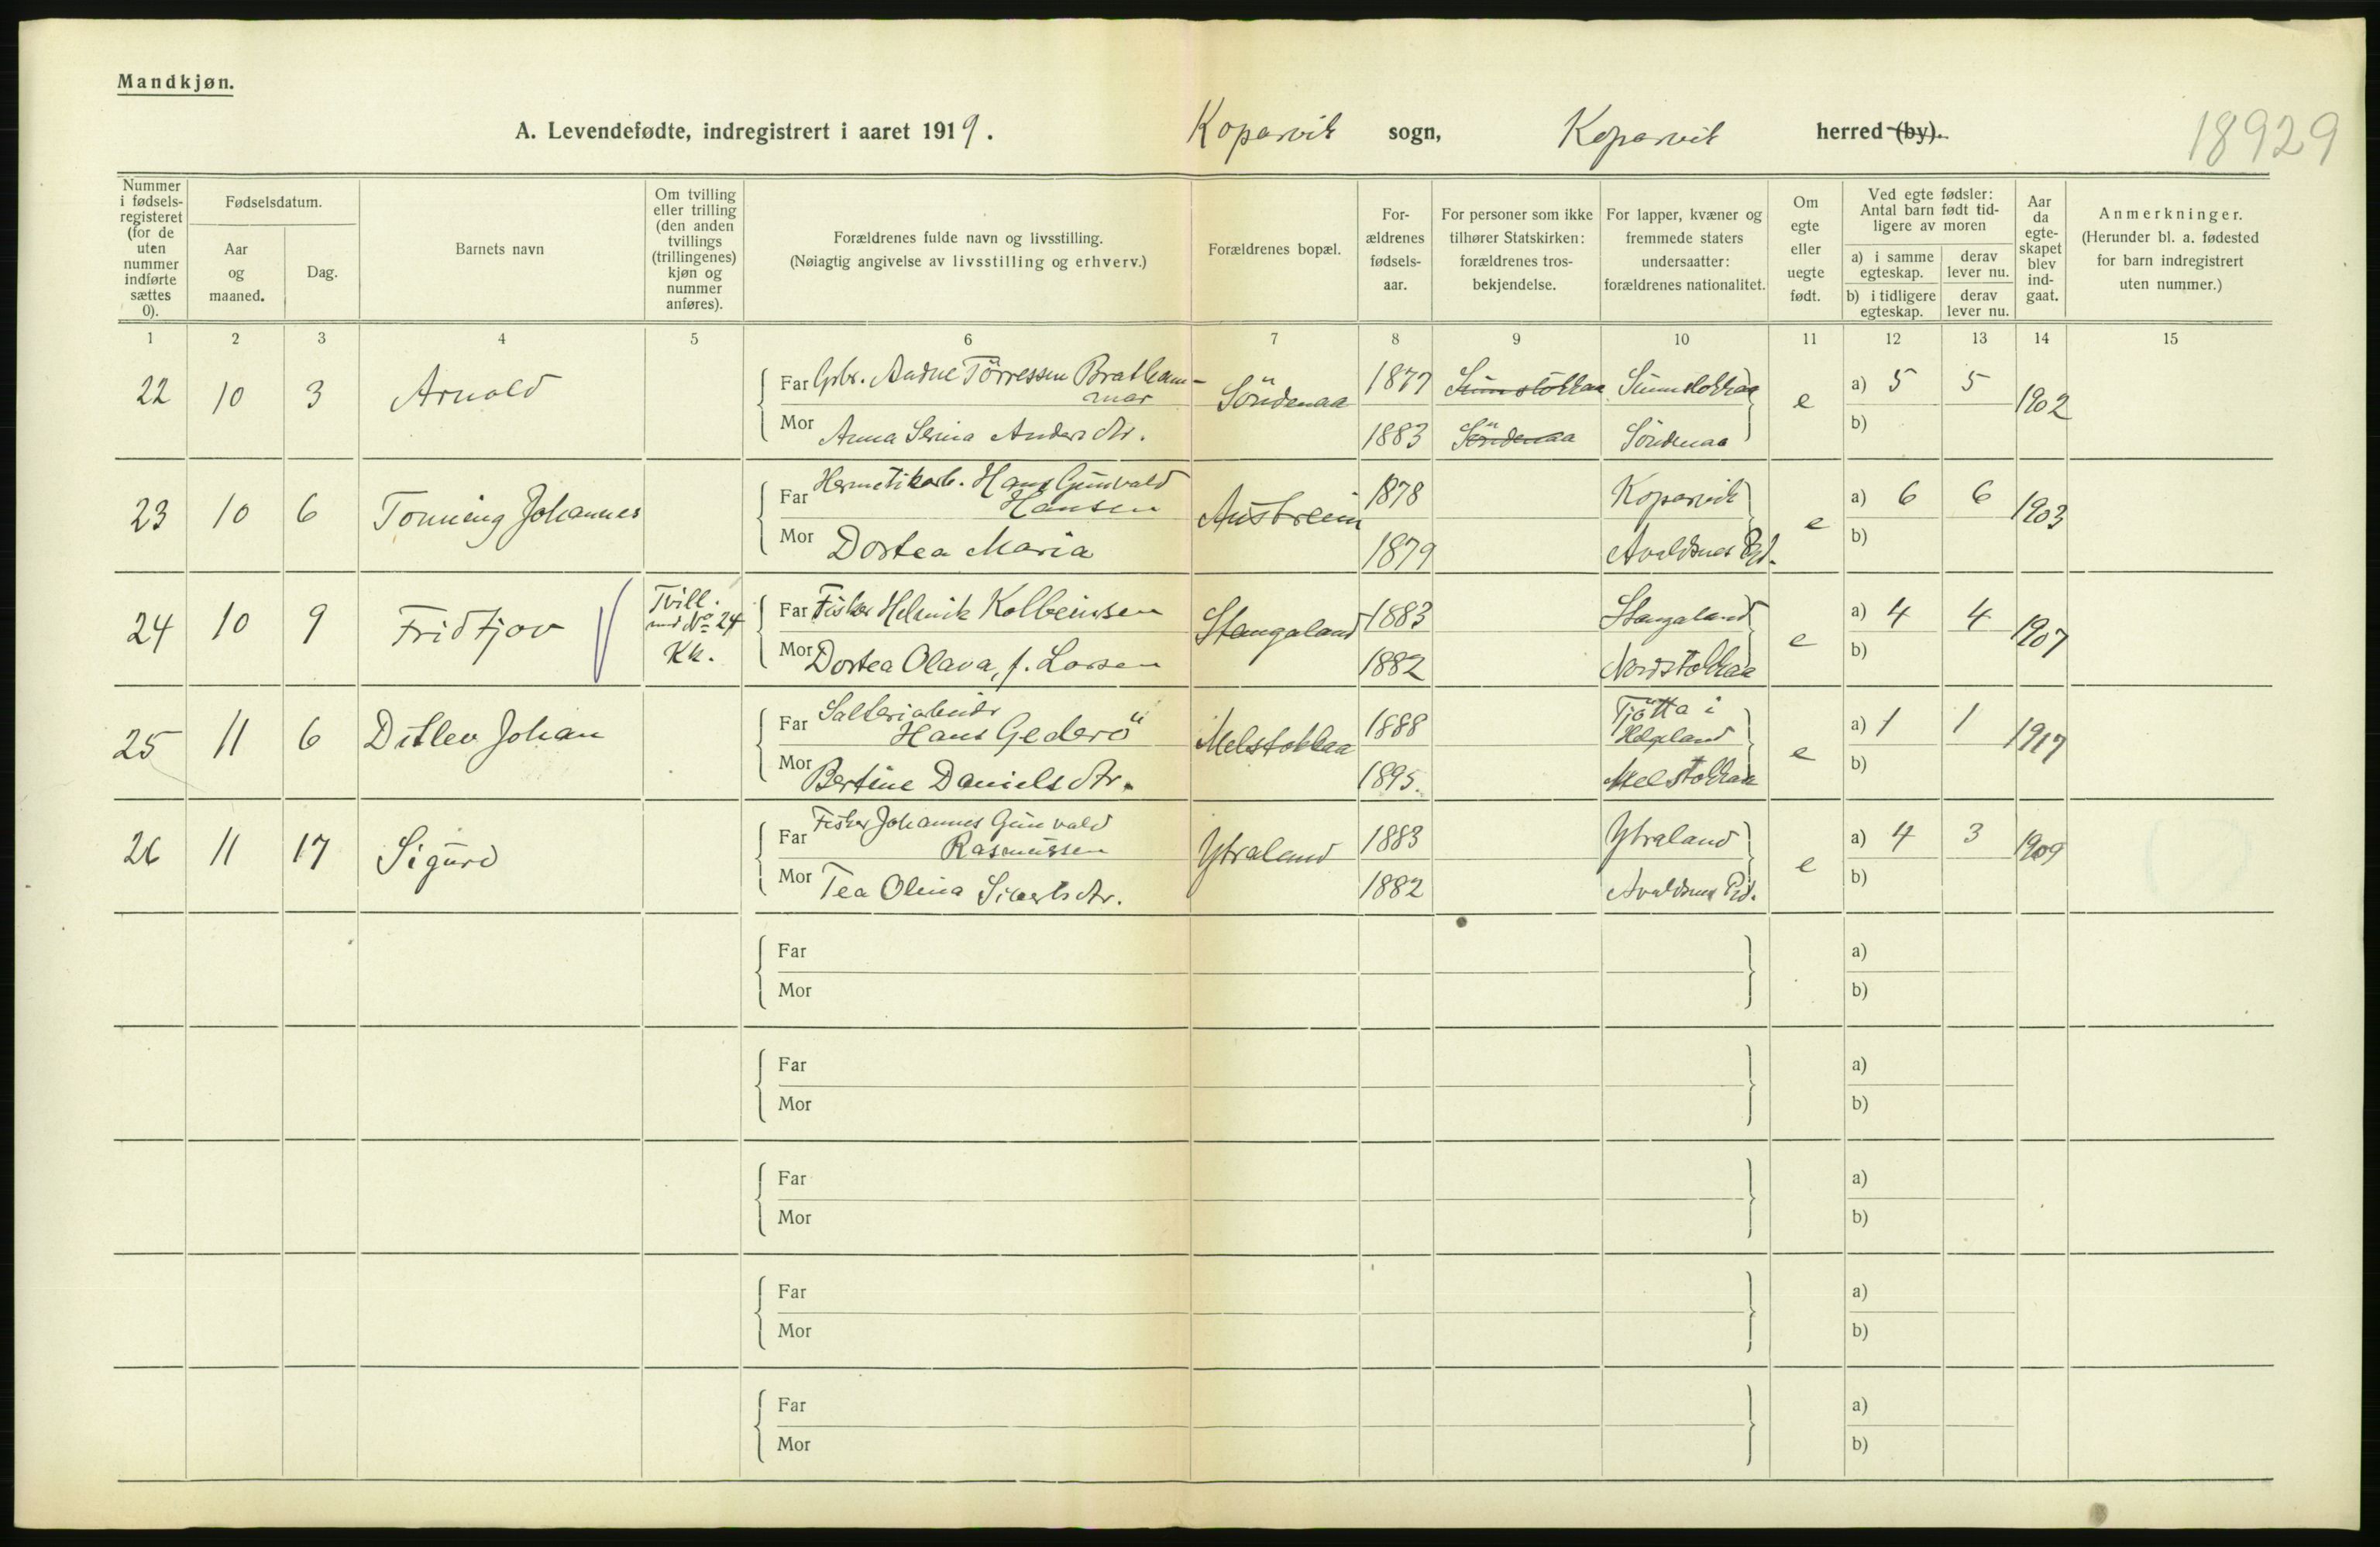 Mandkjøn.
A. Levendefødte, indregistrert i aaret 1919. Kopervik sogn, Kopervik herred (by).
18929
Nummer i fødsels-registeret (for de uten nummer indførte sættes 0).
Fødselsdatum.
Aar og maaned.
Dag.
Barnets navn
Om tvilling eller trilling (den anden tvillings (trillingenes) kjøn og nummer anføres).
Forældrenes fulde navn og livsstilling.
(Nøiagtig angivelse av livsstilling og erhverv.)
Forældrenes bopæl.
For-ældrenes fødsels-aar.
For personer som ikke tilhører Statskirken: forældrenes tros-bekjendelse.
For lapper, kvæner og fremmede staters undersaatter: forældrenes nationalitet.
Om egte eller uegte født.
Ved egte fødsler: Antal barn født tid-ligere av moren
a) i samme egteskap.
derav lever nu.
b) i tidligere egteskap.
derav lever nu.
Aar da egte-skapet blev ind-gaat.
Anmerkninger.
(Herunder bl. a. fødested for barn indregistrert uten nummer.)
1 2 3 4 5 6 7 8 9 10 11 12 13 14 15
22 10 3 Arnold Far Gbr. Andne Törressen Brathammar Söndenaa 1877 Sunnstokkaa Sunnstokkaa e a) 5 5 1902
Mor Anna Serina Andersdtr. 1883 Söndenaa Söndenaa b)
23 10 6 Tonning Johannes Far Hermetikarb. Hans Gunvald Hansen Austreim 1878 Kopervik e a) 6 6 1903
Mor Dortea Maria 1879 Avaldsnes Pgd. b)
24 10 9 Fridtjov Tvill. med No 24 Kk. Far Fisker Helmik Kolbeinsen Stangaland 1883 Stangaland e a) 4 4 1907
Mor Dortea Olava, f. Larsen 1882 Nordstokkaa b)
25 11 6 Ditlev Johan Far Salteriarbeider Hans Gederö Melstokkaa 1888 Tjötta i Helgeland e a) 1 1 1917
Mor Bertine Danielsdtr. 1895. Melstokkaa b)
26 11 17 Sigurd Far Fisker Johannes Gunvald Rasmussen Ytraland 1883 Ytraland e a) 4 3 1909
Mor Tea Olina Sivertsdtr. 1882 Avaldsnes Pgd. b)
Far a)
Mor b)
Far a)
Mor b)
Far a)
Mor b)
Far a)
Mor b)
Far a)
Mor b)